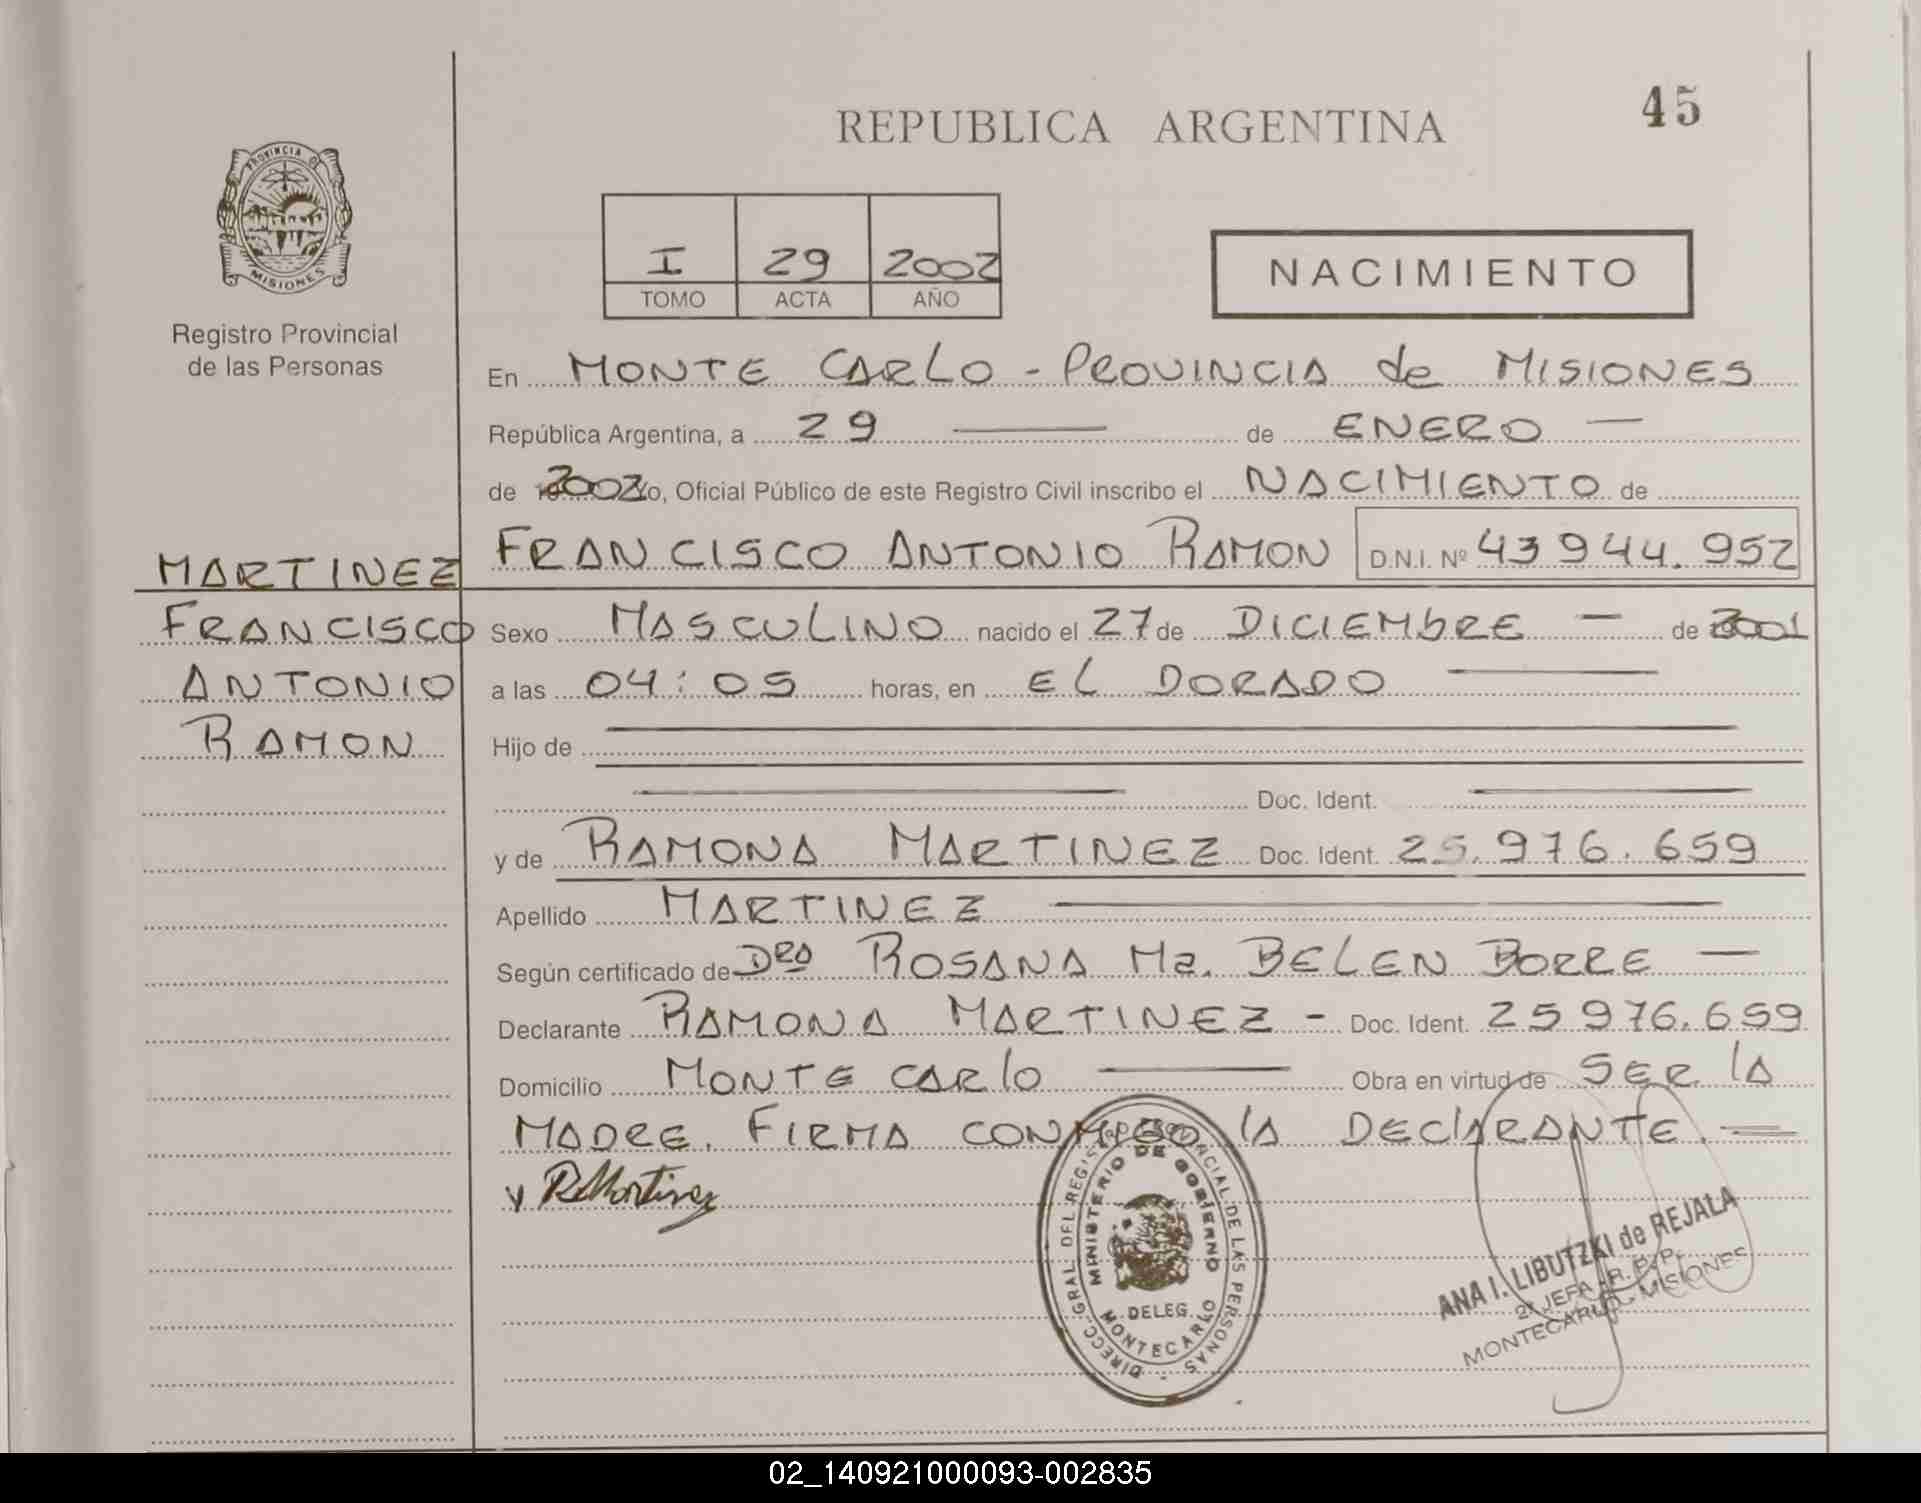 REPUBLICA ARGENTINA
45
PROVINCIA DE
MISIONES
Registro Provincial
de las Personas
I 29 2002
TOMO ACTA AÑO
NACIMIENTO
En MONTE CARLO - PROVINCIA de MISIONES
República Argentina, a 29 de ENERO
de 2002 Yo, Oficial Público de este Registro Civil inscribo el NACIMIENTO de
FRANCISCO ANTONIO RAMON D.N.I. Nº 43944.952
MARTINEZ
FRANCISCO
ANTONIO
RAMON
Sexo MASCULINO nacido el 27 de DICIEMBRE de 2001
a las 04:05 horas, en EL DORADO
Hijo de
Doc. Ident.
y de RAMONA MARTINEZ Doc. Ident. 25.976.659
Apellido MARTINEZ
Según certificado de Dra ROSANA Ma. BELEN BORRE
Declarante RAMONA MARTINEZ - Doc. Ident. 25976.659
Domicilio MONTE CARLO Obra en virtud de SER LA
MADRE. FIRMA CONMIGO LA DECLARANTE.
RMartinez
DIRECC. GRAL. DEL REGISTRO PROVINCIAL DE LAS PERSONAS
MINISTERIO DE GOBIERNO
DELEG.
MONTECARLO
ANA I. LIBUTZKI de REJALA
2º JEFA - R. P. P.
MONTECARLO - MISIONES
02_140921000093-002835